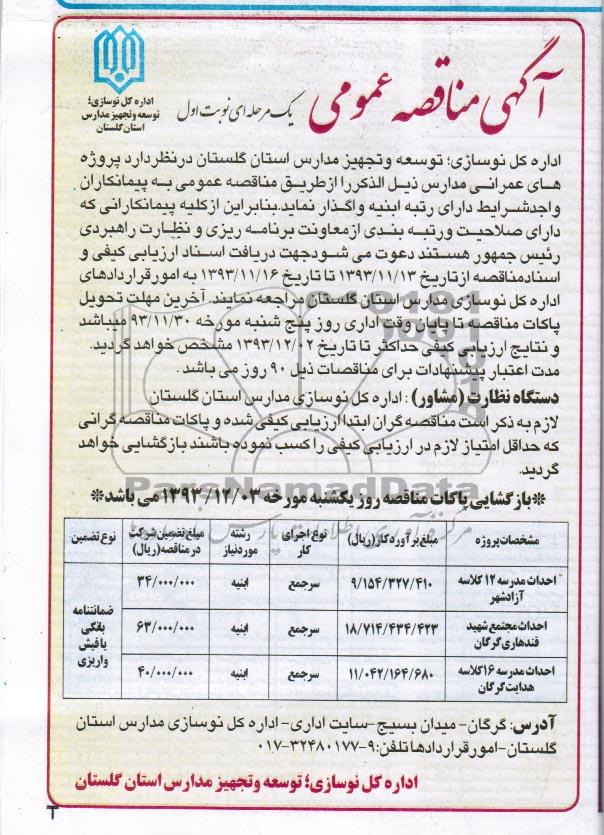 اداره کل نوسازی؛
توسعه و تجهیز مدارس
استان گلستان
آگهی مناقصه عمومی
یک مرحله ای نوبت اول
اداره کل نوسازی؛ توسعه و تجهیز مدارس استان گلستان درنظر دارد پروژه
های عمرانی مدارس ذیل الذکر را از طریق مناقصه عمومی به پیمانکاران
واجدشرایط دارای رتبه ابنیه واگذار نماید.بنابراین از کلیه پیمانکارانی که
دارای صلاحیت ورتبه بندی از معاونت برنامه ریزی و نظارت راهبردی
رئیس جمهور هستند دعوت می شودجهت دریافت اسناد ارزیابی کیفی و
اسنادمناقصه از تاریخ ۱۳۹۳/۱۱/۱۳ تا تاریخ ۱۳۹۳/۱۱/۱۶ به امور قراردادهای
اداره کل نوسازی مدارس استان گلستان مراجعه نمایند. آخرین مهلت تحویل
پاکات مناقصه تا پایان وقت اداری روز پنج شنبه مورخه ۹۳/۱۱/۳۰ میباشد
و نتایج ارزیابی کیفی حداکثر تا تاریخ ۱۳۹۳/۱۲/۰۲ مشخص خواهد گردید.
مدت اعتبار پیشنهادات برای مناقصات ذیل ۹۰ روز می باشد .
دستگاه نظارت (مشاور) : اداره کل نوسازی مدارس استان گلستان
لازم به ذکر است مناقصه گران ابتدا ارزیابی کیفی شده و پاکات مناقصه گرانی
که حداقل امتیاز لازم در ارزیابی کیفی را کسب نموده باشند بازگشایی خواهد
گردید.
ParsNamadData
*بازگشایی پاکات مناقصه روز یکشنبه مورخه ۱۳۹۳/۱۲/۰۳ می باشد*
مشخصات پروژه مبلغ برآورد کار (ریال) نوع اجرای کار رشته موردنیاز مبلغ تضمین شرکت در مناقصه (ریال) نوع تضمین
احداث مدرسه ۱۲ کلاسه آزادشهر ۹/۱۵۴/۳۲۷/۴۱۰ سرجمع ابنیه ۳۴/۰۰۰/۰۰۰ ضمانتنامه بانکی یا فیش واریزی
احداث مجتمع شهید قندهاری گرگان ۱۸/۷۱۴/۴۳۴/۴۲۳ سرجمع ابنیه ۶۳/۰۰۰/۰۰۰
احداث مدرسه ۱۶ کلاسه هدایت گرگان ۱۱/۰۴۲/۱۶۴/۶۸۰ سرجمع ابنیه ۴۰/۰۰۰/۰۰۰
آدرس: گرگان- میدان بسیج- سایت اداری- اداره کل نوسازی مدارس استان
گلستان-امور قراردادها تلفن:۹-۰۱۷-۳۲۴۸۰۱۷۷
اداره کل نوسازی؛ توسعه و تجهیز مدارس استان گلستان